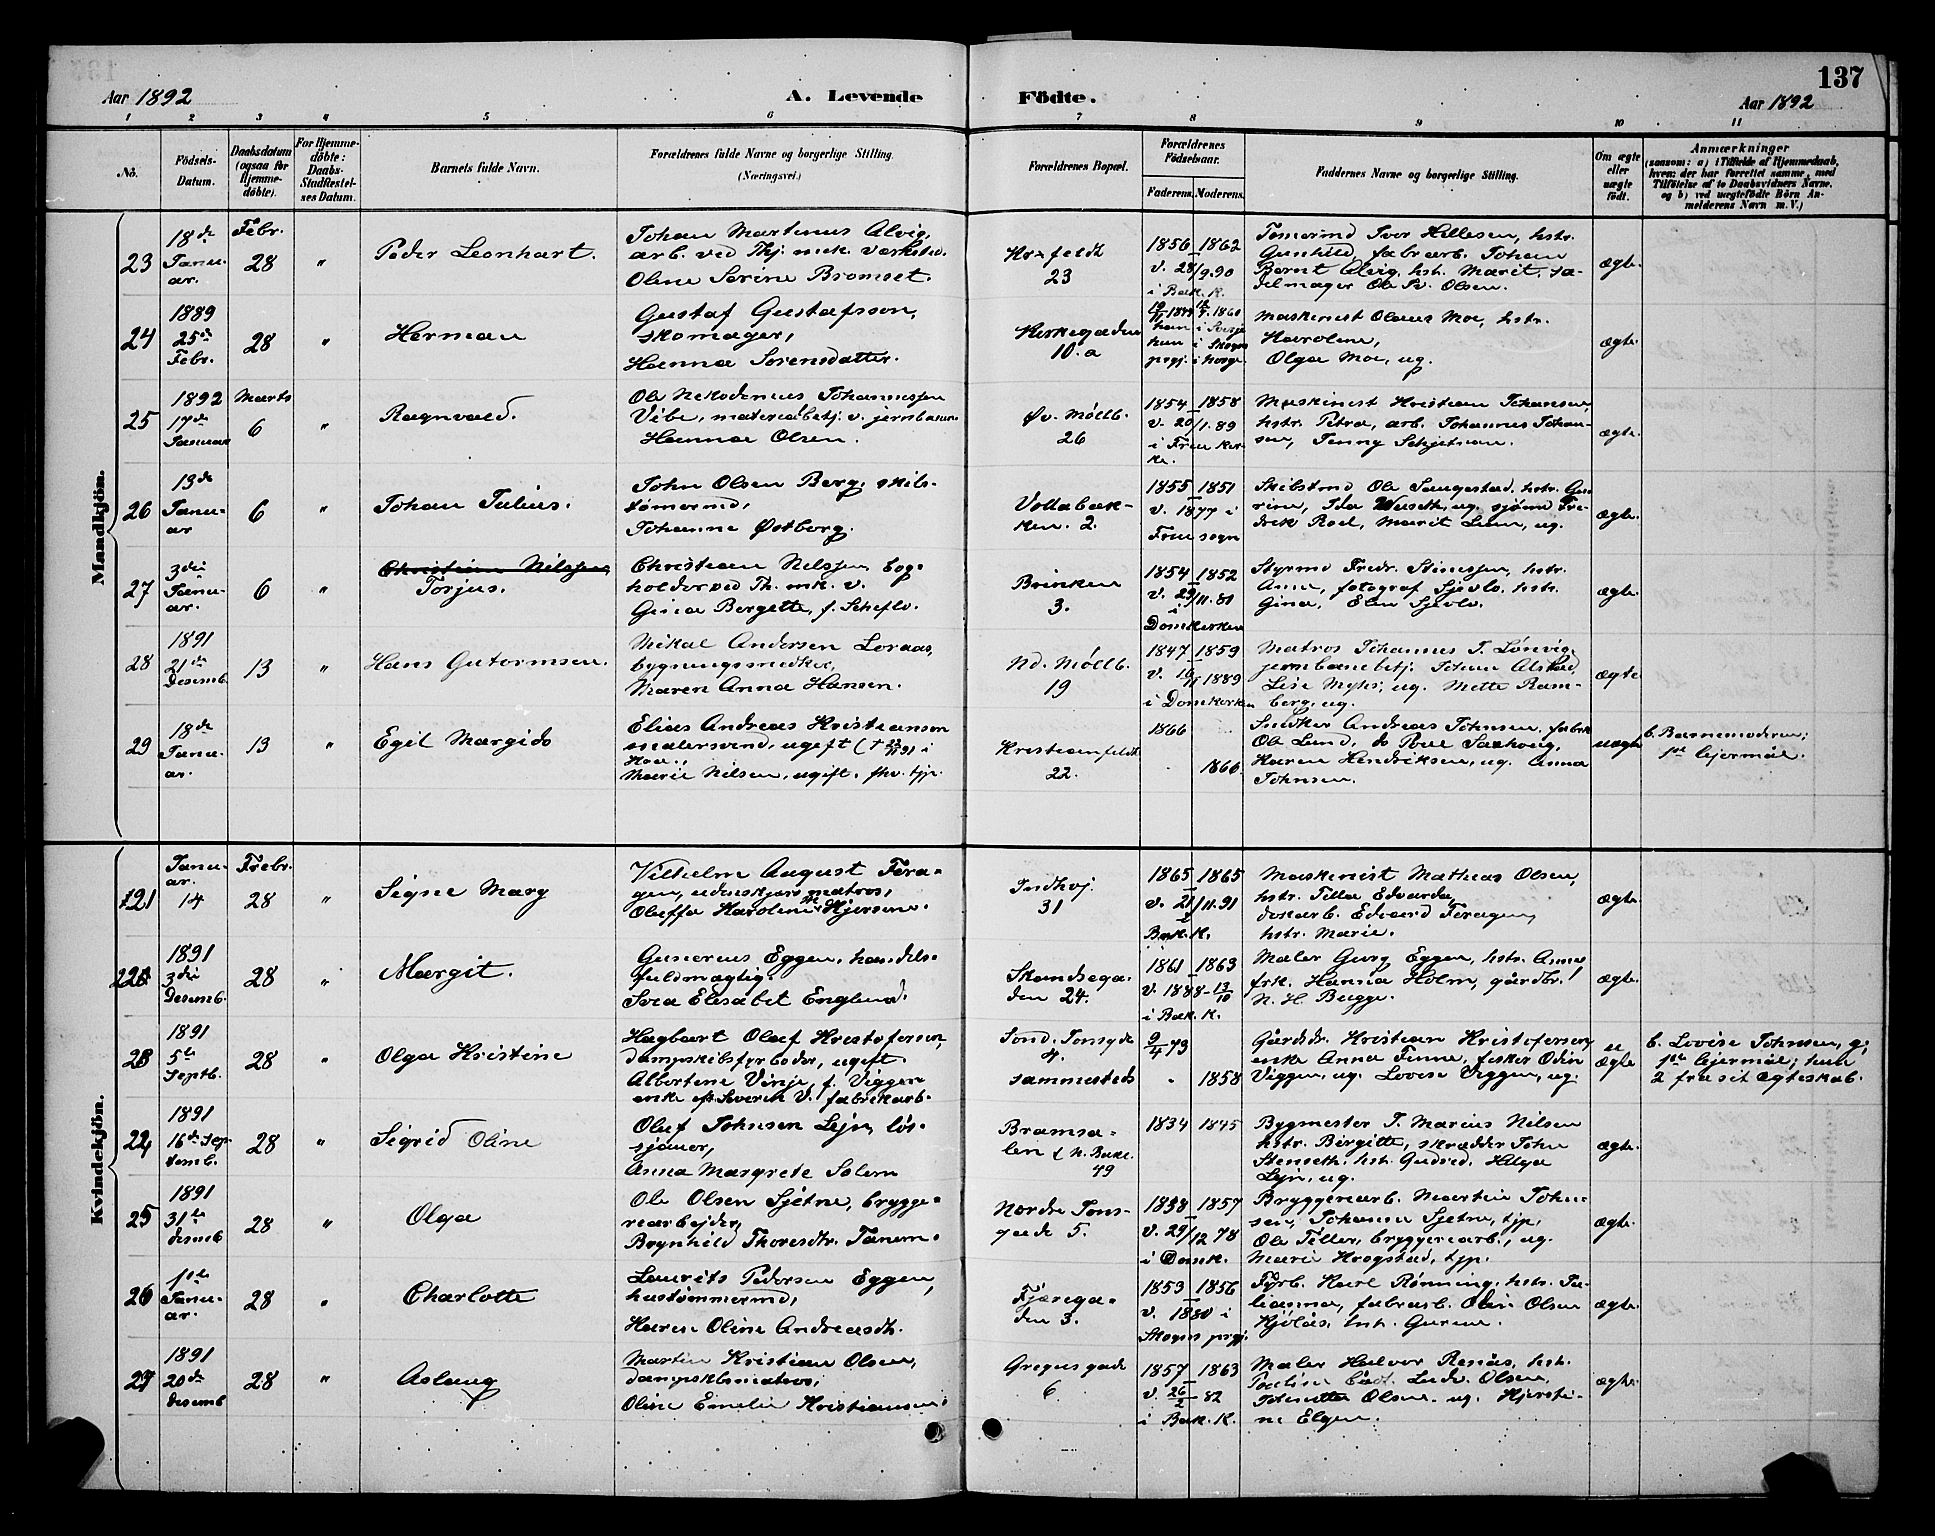 137
Aar 1892
A. Levende
Födte.
Aar 1892
1 2 3 4 5 6 7 8 9 10 11
No.
Födsels-
Datum.
Daabsdatum
(ogsaa for
Hjemme-
döbte).
For Hjemme-
döbte:
Daabs-
Stadfæstel-
ses Datum.
Barnets fulde Navn.
Forældrenes fulde Navne og borgerlige Stilling.
(Næringsvei.)
Forældrenes Bopæl.
Forældrenes
Födselsaar.
Faderens. Moderens.
Faddernes Navne og borgerlige Stilling.
Om ægte
eller
uægte
født.
Anmærkninger
(saasom: a) i Tilfælde af Hjemmedaab,
hvem der har forrettet samme, med
Tilföielse af to Daabsvidners Navne,
og b) ved uægtefödte Börn An-
melderens Navn m. V.)
Mandkjön.
23
18de
Janu-
ar.
Febr.
28
"
Peder Leonhart.
Johan Martinus Alvig,
arb. ved Thj. mek. verksted.
Oline Serine Bromset.
Kr.feldt
23
1856 1862
v. 28/9.90
i Bak. K.
Tømermd Ivor Hellesen, hstr.
Gunhild, fabrarb. Johan
Bernt Alvig, hst. Marit, sa-
delmager Ole Olsen.
ægte
24
1889
25de
Febr.
28
"
Herman
Gustaf Gustafsson,
skomager,
Hanna Sørensdatter.
Kirkegaden
10.a
Maskinist Olaus Moe, hstr.
Karoline,
Olga Moe, ug.
ægte
25
1892
17de
Januar
Marts
6
"
Ragnvald.
Ole Nikodemus Johannessen
Vibe, materialbetj. v. jernbanen
Hanna Olsen.
Øv. Möllb.
26
1854 1858
v. 20/1.89
i Frue kir-
ke.
Maskinist Kristian Johansen,
hstr. Petra, arb. Johannes Johan-
sen, Jenny
ægte.
26
13de
Janu-
ar
6
"
Johan Julius.
John Olsen Berg, skibs-
tömermd,
Johanne Østborg.
Vollabak-
ken. 2.
1855 1851
v. 1877 i
Frue sogn
Skibstmd Ole hstr. Gu-
rine, Ida ug. sjømd Fre-
drik Roel, Marit Lium, ug.
ægte.
27
3die
Janu-
ar.
6
"
Christian Nilssen
Torjus.
Christian Nilssen bog-
holder ved Th. mk. v.
Gina Bergette, f. Scheflo.
Brinken
3.
1854 1852
v. 29/11.81
i
Domkirken
Styrmd Fredr. Stinessen, hstr.
Anna, fotograf Sjevlo, hstr.
Gina, Elen Sjevlo.
ægte.
28
1891
21de
Desemb.
13
"
Hans Gutormsen.
Mikal Andersen Loraas,
bygningssnedker,
Maren Anna Hansen.
Nd. Möllb.
19
1847 1859
v. 1889
i Domkirken
Matros Johannes J. Lönvig,
jernbanebetj. Johan Alstad,
Lise Myhr, ug. Mette Ram-
berg, ug.
ægte
29
18de
Janu-
ar.
13
"
Egil Margido
Elias Andreas Kristiansen
malersvend, ugift
Marie Nilsen, ugift. fhv. tjp.
Kristianfeldt
22.
1866
1866.
Snedker Andreas Johnsen, fabrik
Ole Lund, do Poul
Karen Hendriksen, ug. Anna
Johnsen.
uægte
b. Barnemoderen;
1ste lejermål.
Kvindekjön.
21
Janu-
ar.
14
Febr.
28
"
Signe Mary
Vilhelm August Fora-
gen, udenskjærs matros,
Oleffa Karoline Kjersem.
Indhvj.
31
1865 1865
v. 21/11.91
i
Bak. K.
Maskinist Mathias Olsen,
hstr. Tilla Edvarda,
dokarb. Edvard Foragen,
hstr. Marie.
ægte.
22
1891
3die
Desemb.
28
"
Margit.
Gunerius Eggen, handels-
fuldmægtig,
Sora Elisabet Englund.
Skandsega-
den 24.
1861 1863
v. 1888-13/10
i Bak. K.
Maler Georg Eggen, hstr. Anna
frk. Hanna Holm, gårdbr.
N. H. Bugge.
ægte
23
1891
5te
Septb.
28
"
Olga Kristine
Hagbart Oluf Kristofersen,
dampskibsfyrbøder, ugift.
Albertine Vinje, f. Viggen
enke eft. Severin V. fabrikarb.
Sønd. Tonsgde
4.
sammesteds
9/4 73
" 1858
Gårdbr. Kristian Kristofersen,
enke Anna Finne, fisker Odin
Viggen, ug. Lovise Viggen, ug.
u
ægte
b. Lovise Johnsen, g;
1ste lejermål; hun
2 fra sit ægteskab.
24
1891
16de Sep-
temb.
28
"
Sigrid Oline
Oluf Johnsen Lejn, løs-
sjauer,
Anna Margrete Solem
Bromsa-
len
49
1834 1845
Bygmester J. Marius Nilsen
hstr. Birgitte, skrædder John
Stenseth, hst. Gudrid, Helga
Lejn, ug.
ægte.
25
1891
31te
desemb
28
"
Olga
Ole Olsen Sjetne, brygge-
riearbejder,
Brynhild Thoresdtr. Tanem.
Nordre Tons-
gade 5.
1838 1857
v. 29/12 78
i Domk.
Bryggeriarb. Martin John-
sen, Johanna Sjetne, tjp,
Ole Tiller, bryggeriarb., ug.
Marie Krogstad, tjp.
ægte.
26
1ste
Janu-
ar.
28
"
Charlotte
Laurits Pedersen Eggen,
hustømmermd,
Karen Oline Andreasdt.
Fjærega-
den 3.
1853 1856
v. 1880 i
Skogns prgj.
Fyrb. Karl Rønning, hstr. Ju-
lianna, fabrarb. Odin Olsen
Kjölås, hst. Gurine.
ægte.
27
1891
20de
desemb
28
"
Aslaug
Martin Kristian Olsen,
dampskbmatros,
Oline Emelie Kristiansen.
Gregusgade
6
1857 1863
v. 26/2 82
i Bak. K.
Maler Halvor Renås, hst.
Pauline Ludv. Olsen,
Olsen, ug. Kjersti-
ne Elgen.
ægte.